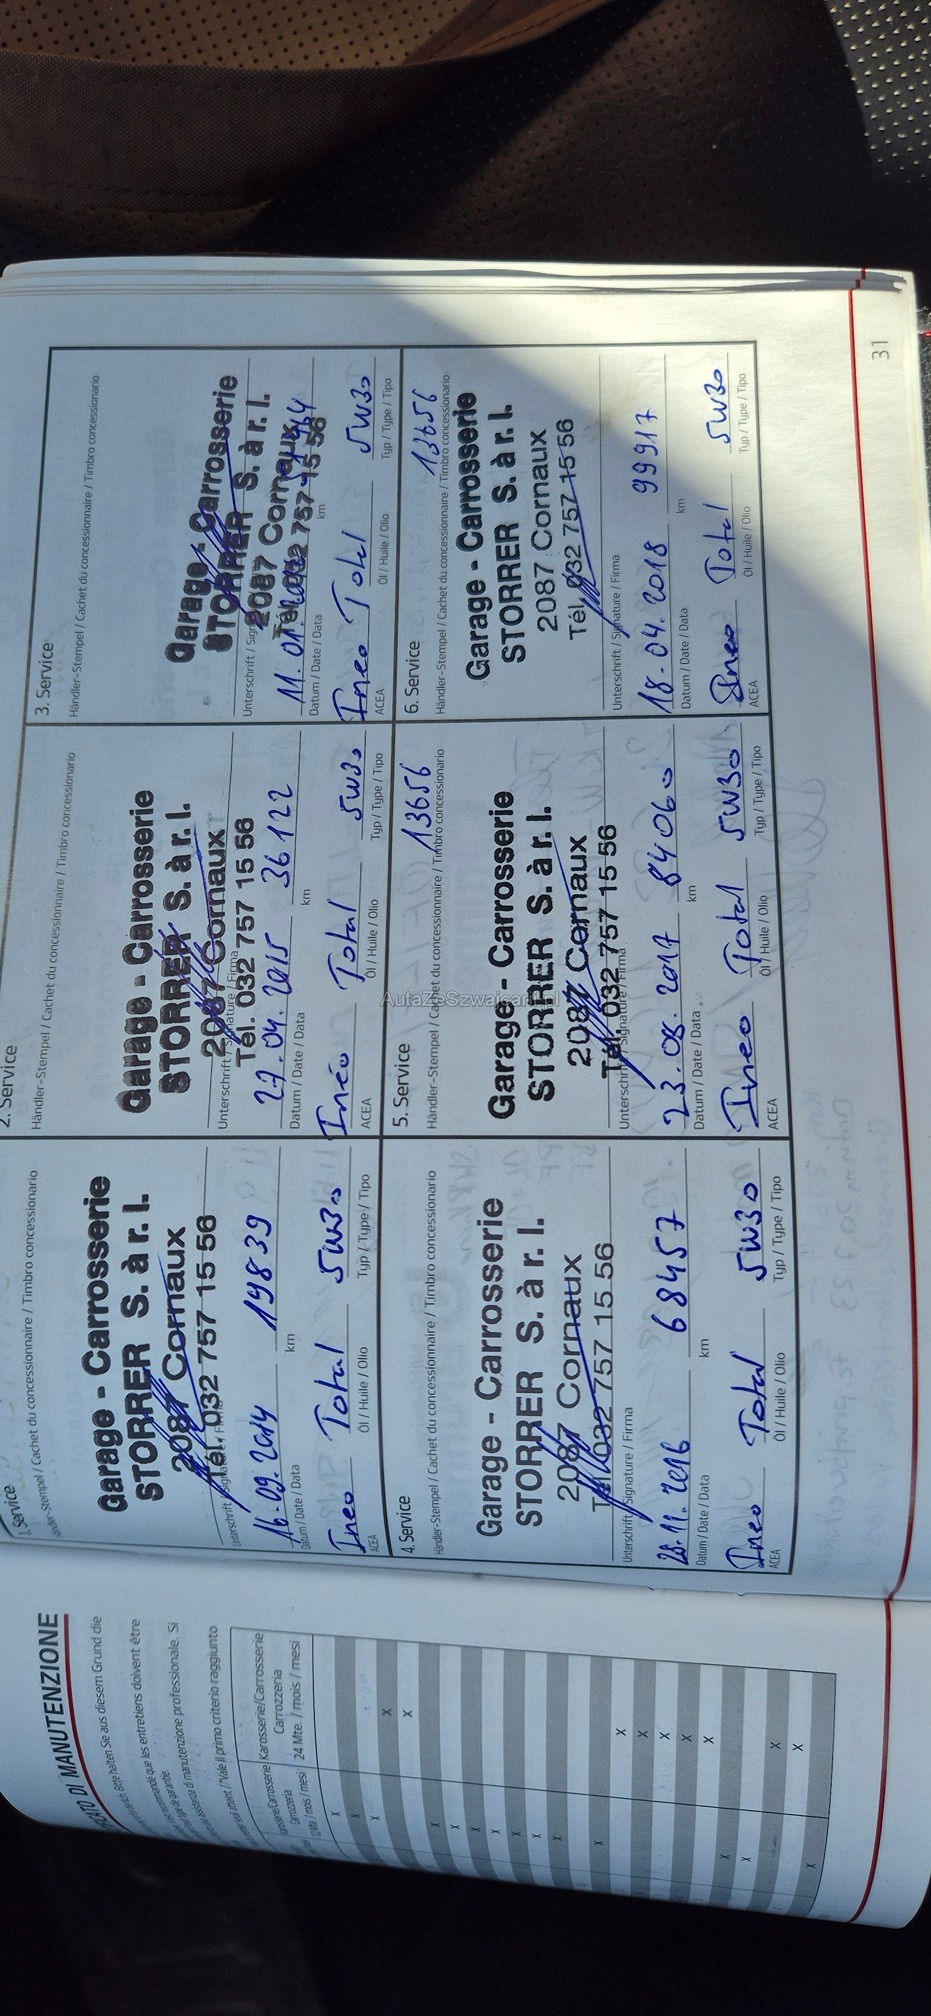 RATO DI MANUTENZIONE
Bitte halten Sie aus diesem Grund die
que les entretiens doivent être
di manutenzione professionale. Si
Vale il primo criterio raggiunto
Karosserie/Carrosserie
Carrozzeria
24 Mte. / mois / mesi
1. Service
Händler-Stempel / Cachet du concessionnaire / Timbro concessionario
Garage - Carrosserie
STORRER S. à r. l.
2087 Cornaux
Tél. 032 757 15 56
Unterschrift / Signature / Firma
16.09.2014 19839
Datum / Date / Data km
Ineo Total 5W30
ACEA Öl / Huile / Olio Typ / Type / Tipo
2. Service
Händler-Stempel / Cachet du concessionnaire / Timbro concessionario
Garage - Carrosserie
STORRER S. à r. l.
2087 Cornaux
Tél. 032 757 15 56
Unterschrift / Signature / Firma
27.04.2015 36122
Datum / Date / Data km
Ineo Total 5W30
ACEA Öl / Huile / Olio Typ / Type / Tipo
3. Service
Händler-Stempel / Cachet du concessionnaire / Timbro concessionario
Garage - Carrosserie
STORRER S. à r. l.
2087 Cornaux
Tél. 032 757 15 56
Unterschrift
Datum / Date / Data km
Ineo Total 5W30
ACEA Öl / Huile / Olio Typ / Type / Tipo
4. Service
Händler-Stempel / Cachet du concessionnaire / Timbro concessionario
Garage - Carrosserie
STORRER S. à r. l.
2087 Cornaux
Tél. 032 757 15 56
Unterschrift / Signature / Firma
28.11.2016 68457
Datum / Date / Data km
Ineo Total 5W30
ACEA Öl / Huile / Olio Typ / Type / Tipo
5. Service
13656
Händler-Stempel / Cachet du concessionnaire / Timbro concessionario
Garage - Carrosserie
STORRER S. à r. l.
2087 Cornaux
Tél. 032 757 15 56
Unterschrift / Signature / Firma
23.08.2017 84060
Datum / Date / Data km
Ineo Total 5W30
ACEA Öl / Huile / Olio Typ / Type / Tipo
6. Service
13656
Händler-Stempel / Cachet du concessionnaire / Timbro concessionario
Garage - Carrosserie
STORRER S. à r. l.
2087 Cornaux
Tél. 032 757 15 56
Unterschrift / Signature / Firma
18.04.2018 99917
Datum / Date / Data km
Ineo Total 5W30
ACEA Öl / Huile / Olio Typ / Type / Tipo
31
AutaZeSzwajcarii.pl